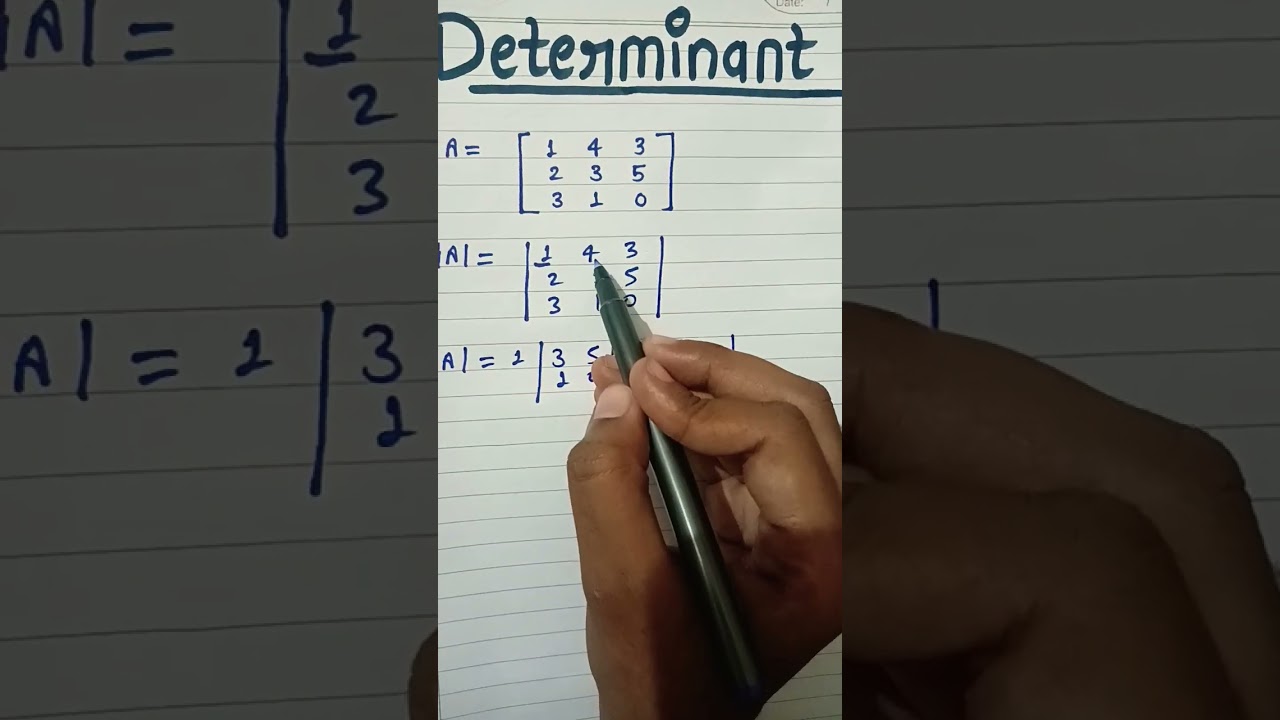 Date:
Determinant
A = [ 1 4 3
2 3 5
3 1 0 ]
|A| = | 1 4 3 |
2 5
3 1 0
A| = 1 | 3 5
1
|A| = 1
2
3
A| = 1 | 3
1